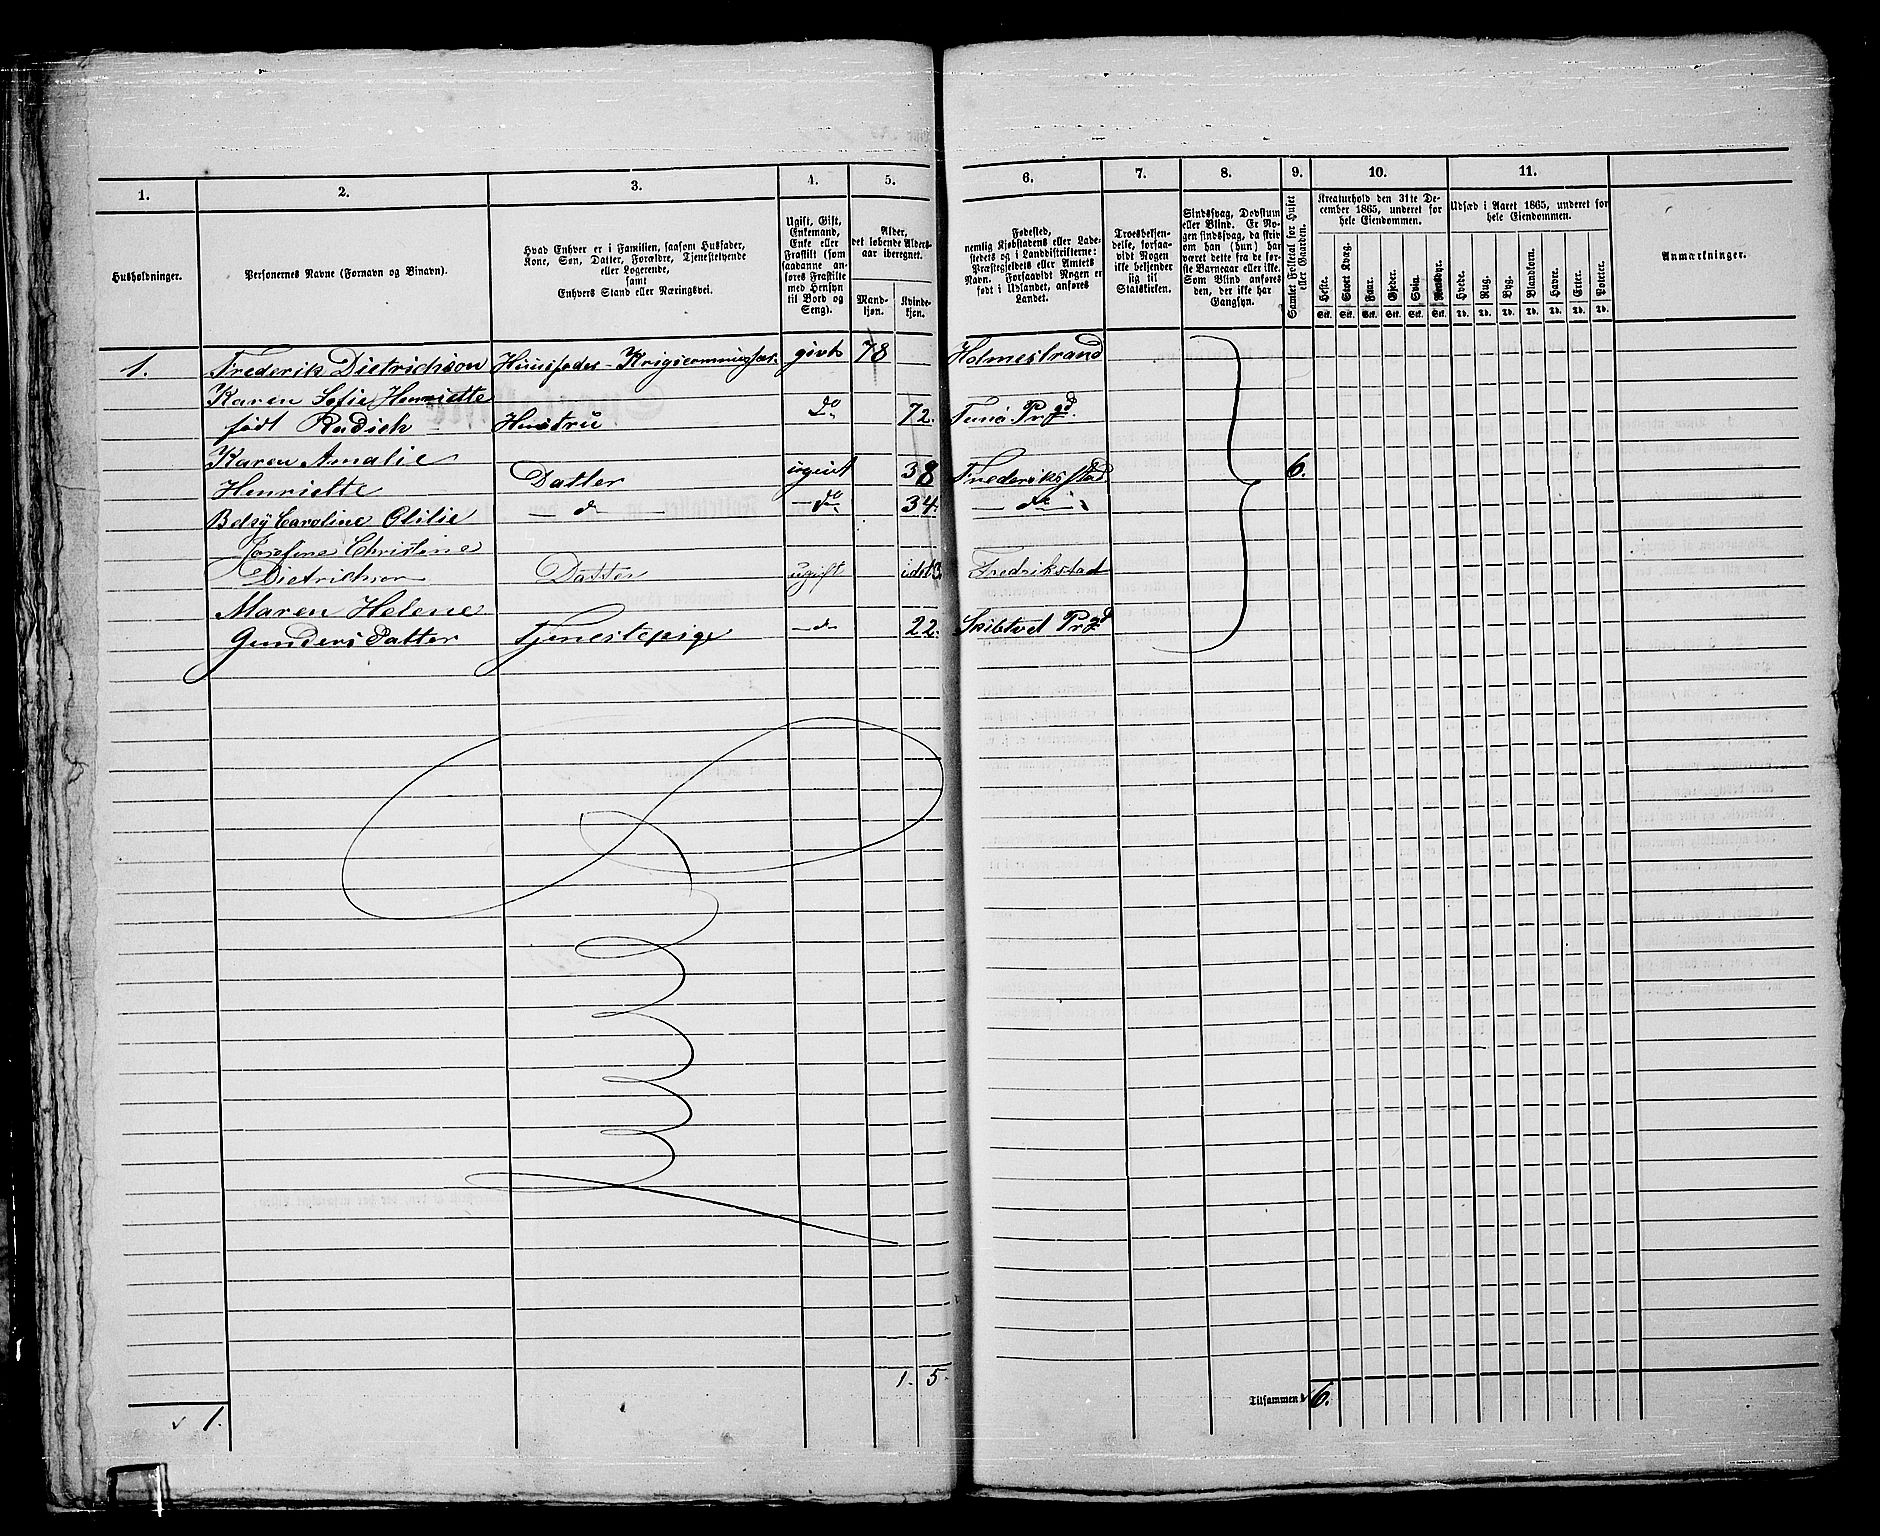 1. 2. 3. 4. 5. 6. 7. 8. 9. 10. 11.
Husholdninger.
Personernes Navne (Fornavn og Binavn).
Hvad Enhver er i Familien, saasom Husfader,
Kone, Søn, Datter, Forældre, Tjenestetyende
eller Logerende,
samt
Enhvers Stand eller Næringsvei.
Ugift, Gift,
Enkemand,
Enke eller
Fraskilt (som
saadanne an-
føres Fraskilte
med Hensyn
til Bord og
Seng).
Alder,
det løbende Alders-
aar iberegnet.
Mand-
kjøn.
Kvinde-
kjøn.
Fødested,
nemlig Kjøbstadens eller Lade-
stedets og i Landdistrikterne:
Præstegjeldets eller Amtets
Navn. Forsaavidt Nogen er
født i Udlandet, anføres
Landet.
Troesbekjen-
delse, forsaa-
vidt Nogen
ikke bekjender
sig til
Statskirken.
Sindssvag, Døvstum
eller Blind. Er No-
gen sindssvag, da skriv
om han (hun) har
været dette fra de før-
ste Barneaar eller ikke.
Som Blind anføres
den, der ikke har
Gangsyn.
Samlet Folketal for Huset
eller Gaarden.
Kreaturhold den 31te De-
cember 1865, underet for
hele Eiendommen.
Heste. Stort Kvæg. Faar. Gjeder. Sviin. Rensdyr.
Stk. Stk. Stk. Stk. Stk. Stk.
Udsæd i Aaret 1865, underet for
hele Eiendommen.
Hvede. Rug. Byg. Blandkorn. Havre. Erter. Poteter.
Td. Td. Td. Td. Td. Td. Td.
Anmærkninger.
1. Frederik Dietrichson Huusfader - givt 78 Holmestrand
Karen Sofie Henriette
født Radich Hustru Do 72. Tunø Prgd.
Karen Amalie
Henriette Datter ugivt 38 Frederiksstad 6.
Betsy Caroline Otilie - d - - do - 34. - do -
Josefine Christine
Dietrichson Datter ugift Fredrikstad
Maren Helene
Gunders Datter Tjenestepige - d - 22. Skibtvet Prgd
1. 5.
1. Tilsammen 6.